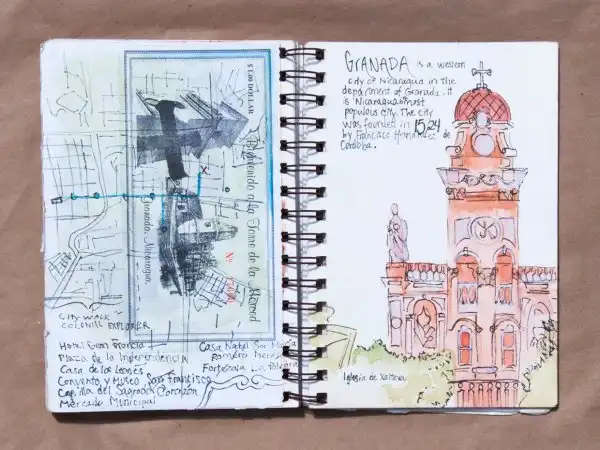 $1.00 DOLLAR
Bienvenido a la Torre de la Merced
Granada, Nicaragua.
Nº
X
CITY WALK
COLONIAL EXPLORER
Hotel Gran Francia
Plaza de la Independencia
Casa de los Leones
Convento y Museo San Francisco
Capilla del Sagrado Corazón
Mercado Municipal
Casa Natal Sor María
Romero Meneses
Fortaleza La Pólvora
GRANADA is a western
city of Nicaragua in the
department of Granada. It
is Nicaragua's most
populous city. The city
was founded in 1524
by Francisco Hernández de
Córdoba.
Iglesia de Xalteva